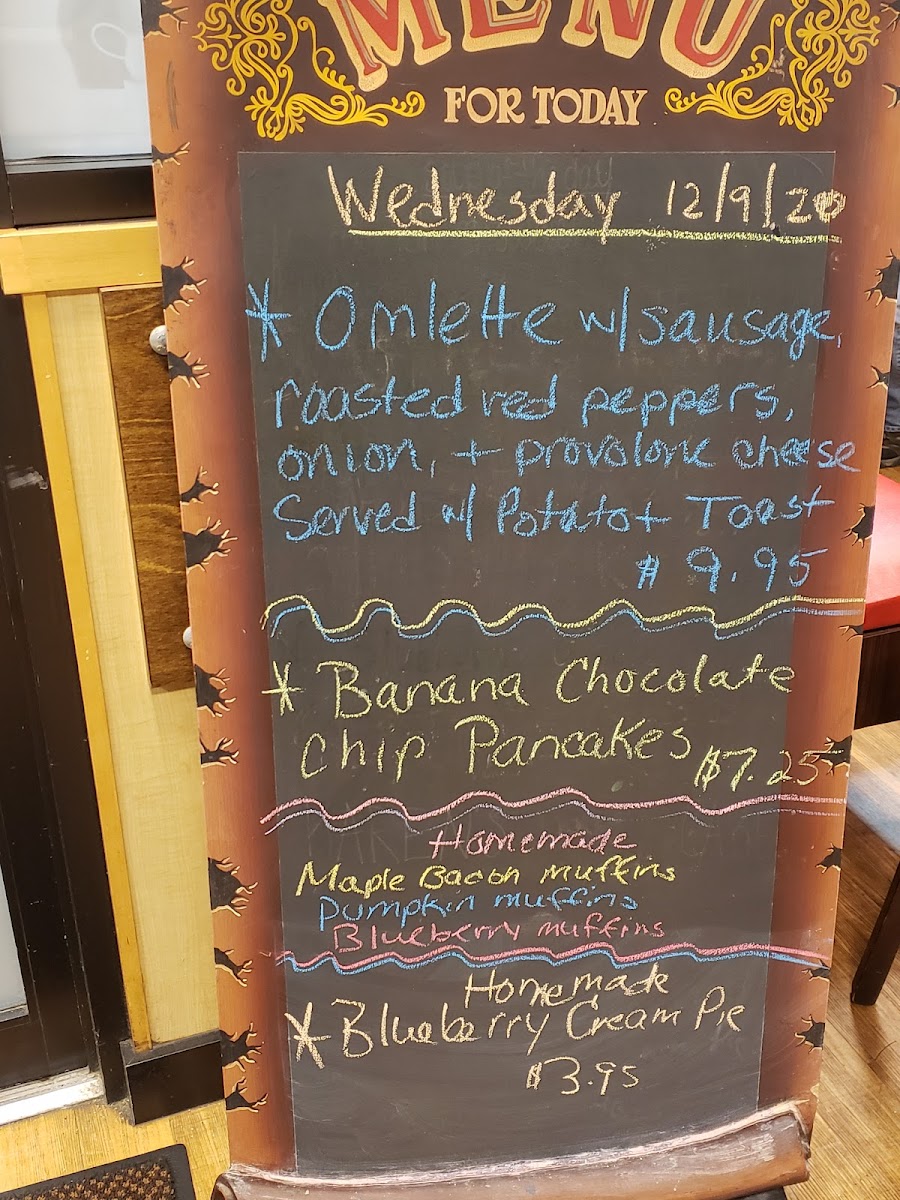 MENU
FOR TODAY
Wednesday 12/9/20
* Omlette w/sausage,
roasted red peppers,
onion, + provolone cheese
Served w/ Potato + Toast
$9.95
* Banana Chocolate
Chip Pancakes $7.25
Homemade
Maple Bacon muffins
Pumpkin muffins
Blueberry muffins
Homemade
* Blueberry Cream Pie
$3.95